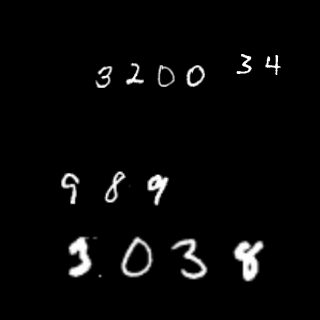 3200 34
989
3038